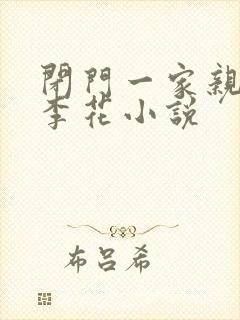 閉門一家親
李花小説
布呂希